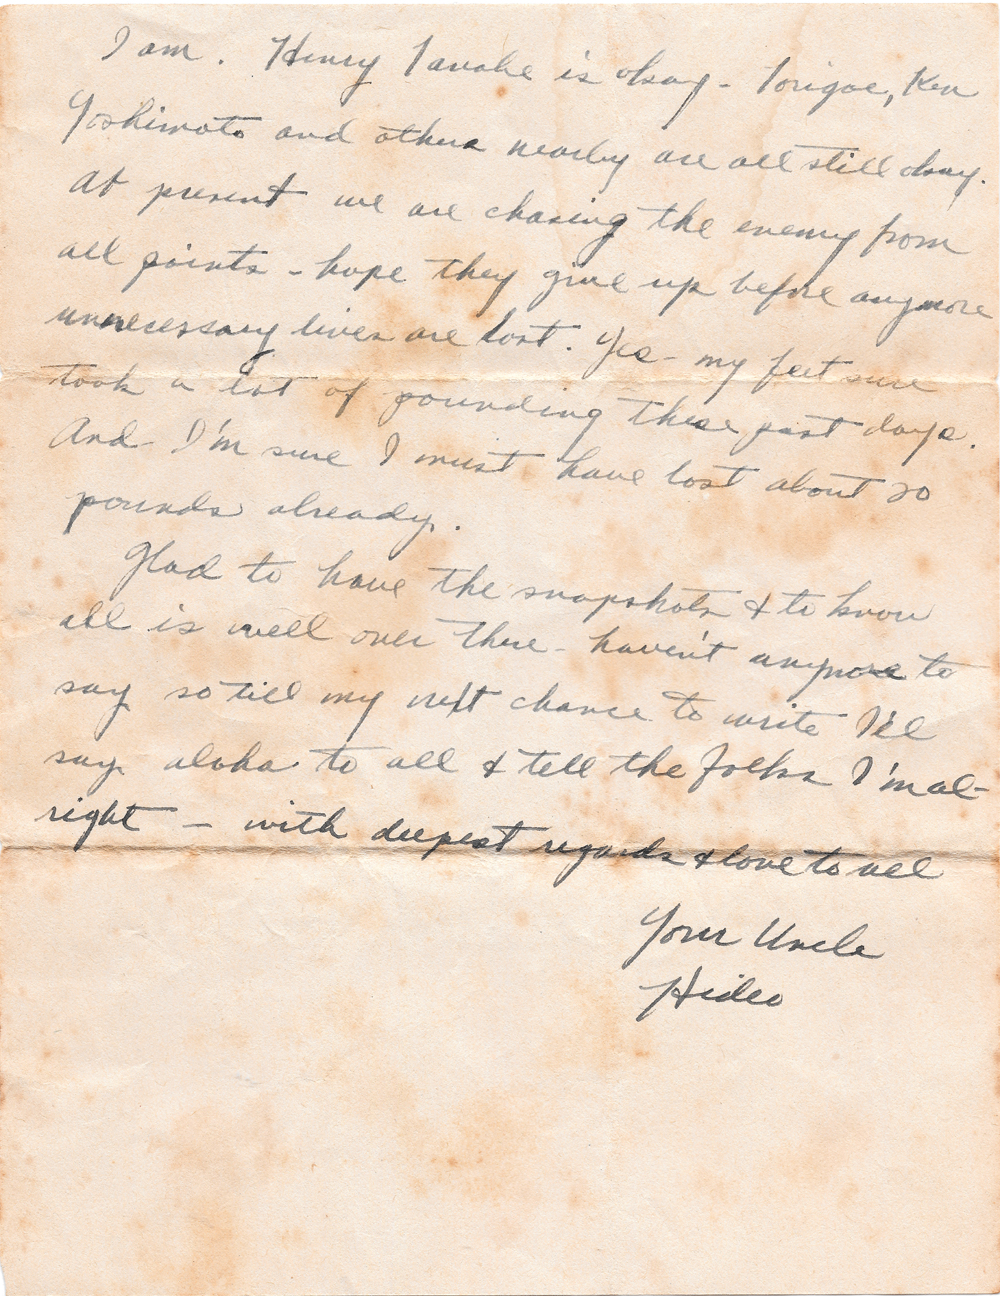 I am. Henry Tanabe is okay - Torigoe, Ken
Yoshimoto and others nearby are all still okay.
At present we are chasing the enemy from
all points - hope they give up before anymore
unnecessary lives are lost. Yes - my feet sure
took a lot of pounding these past days.
And I'm sure I must have lost about 20
pounds already.
Glad to have the snapshots & to know
all is well over there - haven't anymore to
say so till my next chance to write I'll
say aloha to all & tell the folks I'm al-
right - with deepest regards & love to all
Your Uncle
Hideo